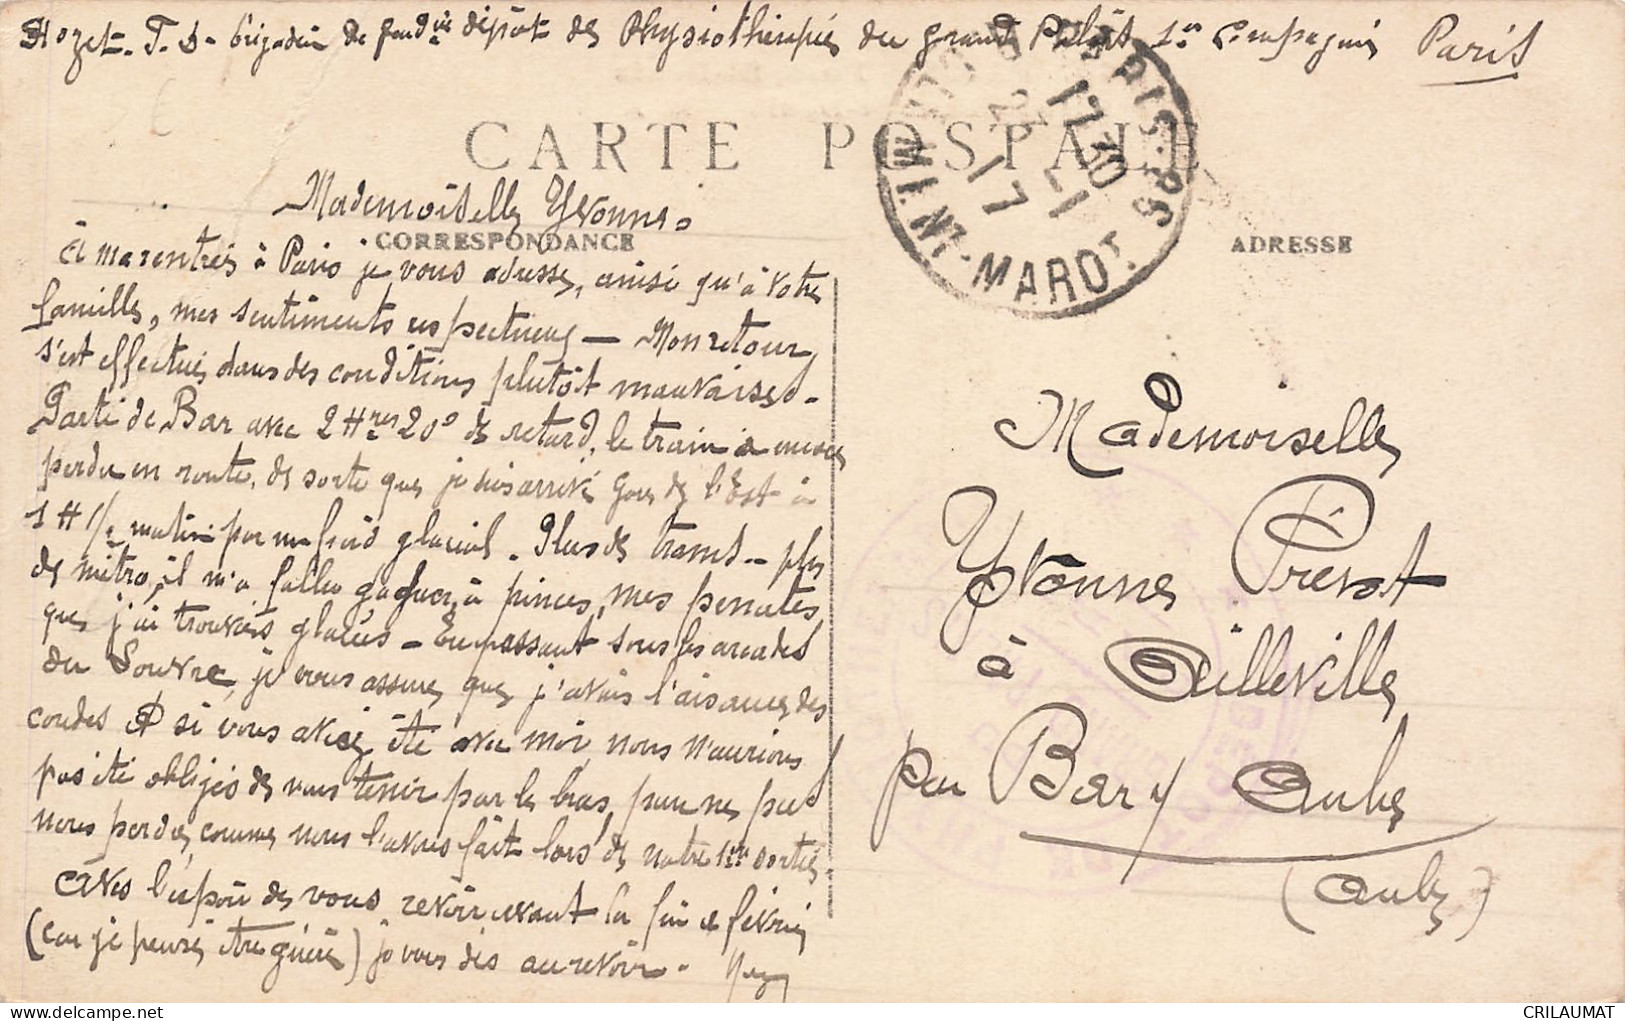 Hozet. T. D. brigadier de gend^rie dépôt de Physiothérapie du grand Palais 1ère Compagnie Paris
CARTE POSTALE
CORRESPONDANCE
ADRESSE
PARIS
17 30
MARO
Mademoiselle Yvonne.
à ma rentrée à Paris je vous adresse, ainsi qu'à votre
famille, mes sentiments respectueux — Mon retour
s'est effectué dans des conditions plutôt mauvaises.
Parti de Bar avec 2 Hres 20' de retard, le train a encore
perdu en route, de sorte que je suis arrivé gare de l'Est à
1 H 1/2 matin par un froid glacial. Plus de trams - plus
de métro, il m'a fallu gagner, à pinces, mes penates
que j'ai trouvés glacés - En passant sous les arcades
du Louvre, je vous assure que j'avais l'aisance des
coudes et si vous aviez été avec moi, nous n'aurions
pas été obligés de nous tenir par le bras, pour ne pas
nous perdre, comme nous l'avons fait lors de notre 1ère sortie.
Avec l'espoir de vous revoir avant la fin de février
(car je pense être guéri) je vous dis au revoir.
Mademoiselle
Yvonne Prévot
à Ailleville
par Bar s/ Aube
(Aube)
CRILAUMAT